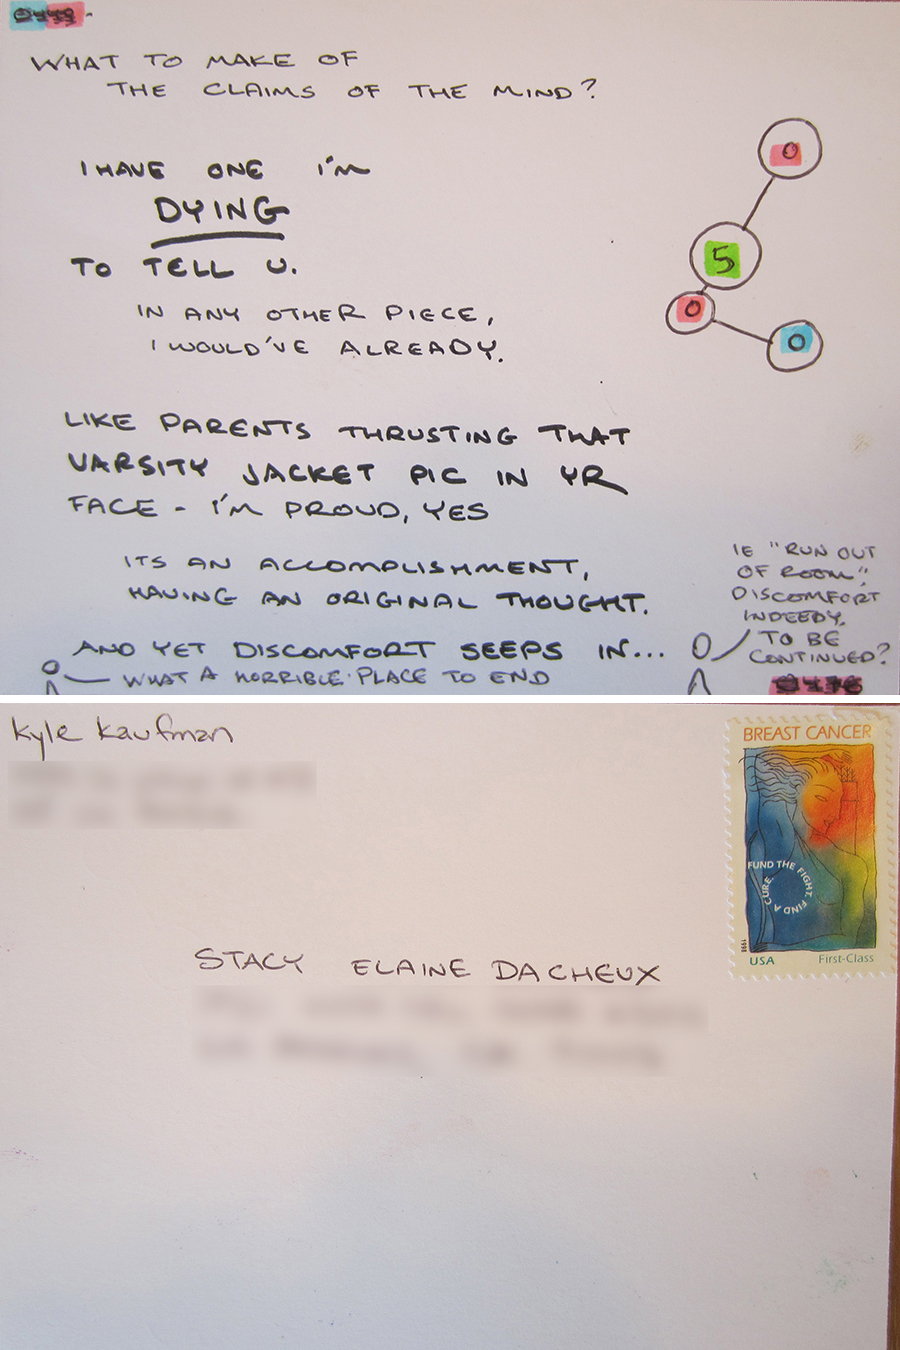 WHAT TO MAKE OF
THE CLAIMS OF THE MIND?
I HAVE ONE I'M
DYING
TO TELL U.
IN ANY OTHER PIECE,
I WOULD'VE ALREADY.
LIKE PARENTS THRUSTING THAT
VARSITY JACKET PIC IN YR
FACE - I'M PROUD, YES
ITS AN ACCOMPLISHMENT,
HAVING AN ORIGINAL THOUGHT.
AND YET DISCOMFORT SEEPS IN...
WHAT A HORRIBLE PLACE TO END
0
5
0
0
IE "RUN OUT
OF ROOM".
DISCOMFORT
INDEEDY.
TO BE
CONTINUED?
Kyle Kaufman
BREAST CANCER
FUND THE FIGHT. FIND A CURE.
1998
USA First-Class
STACY ELAINE DACHEUX